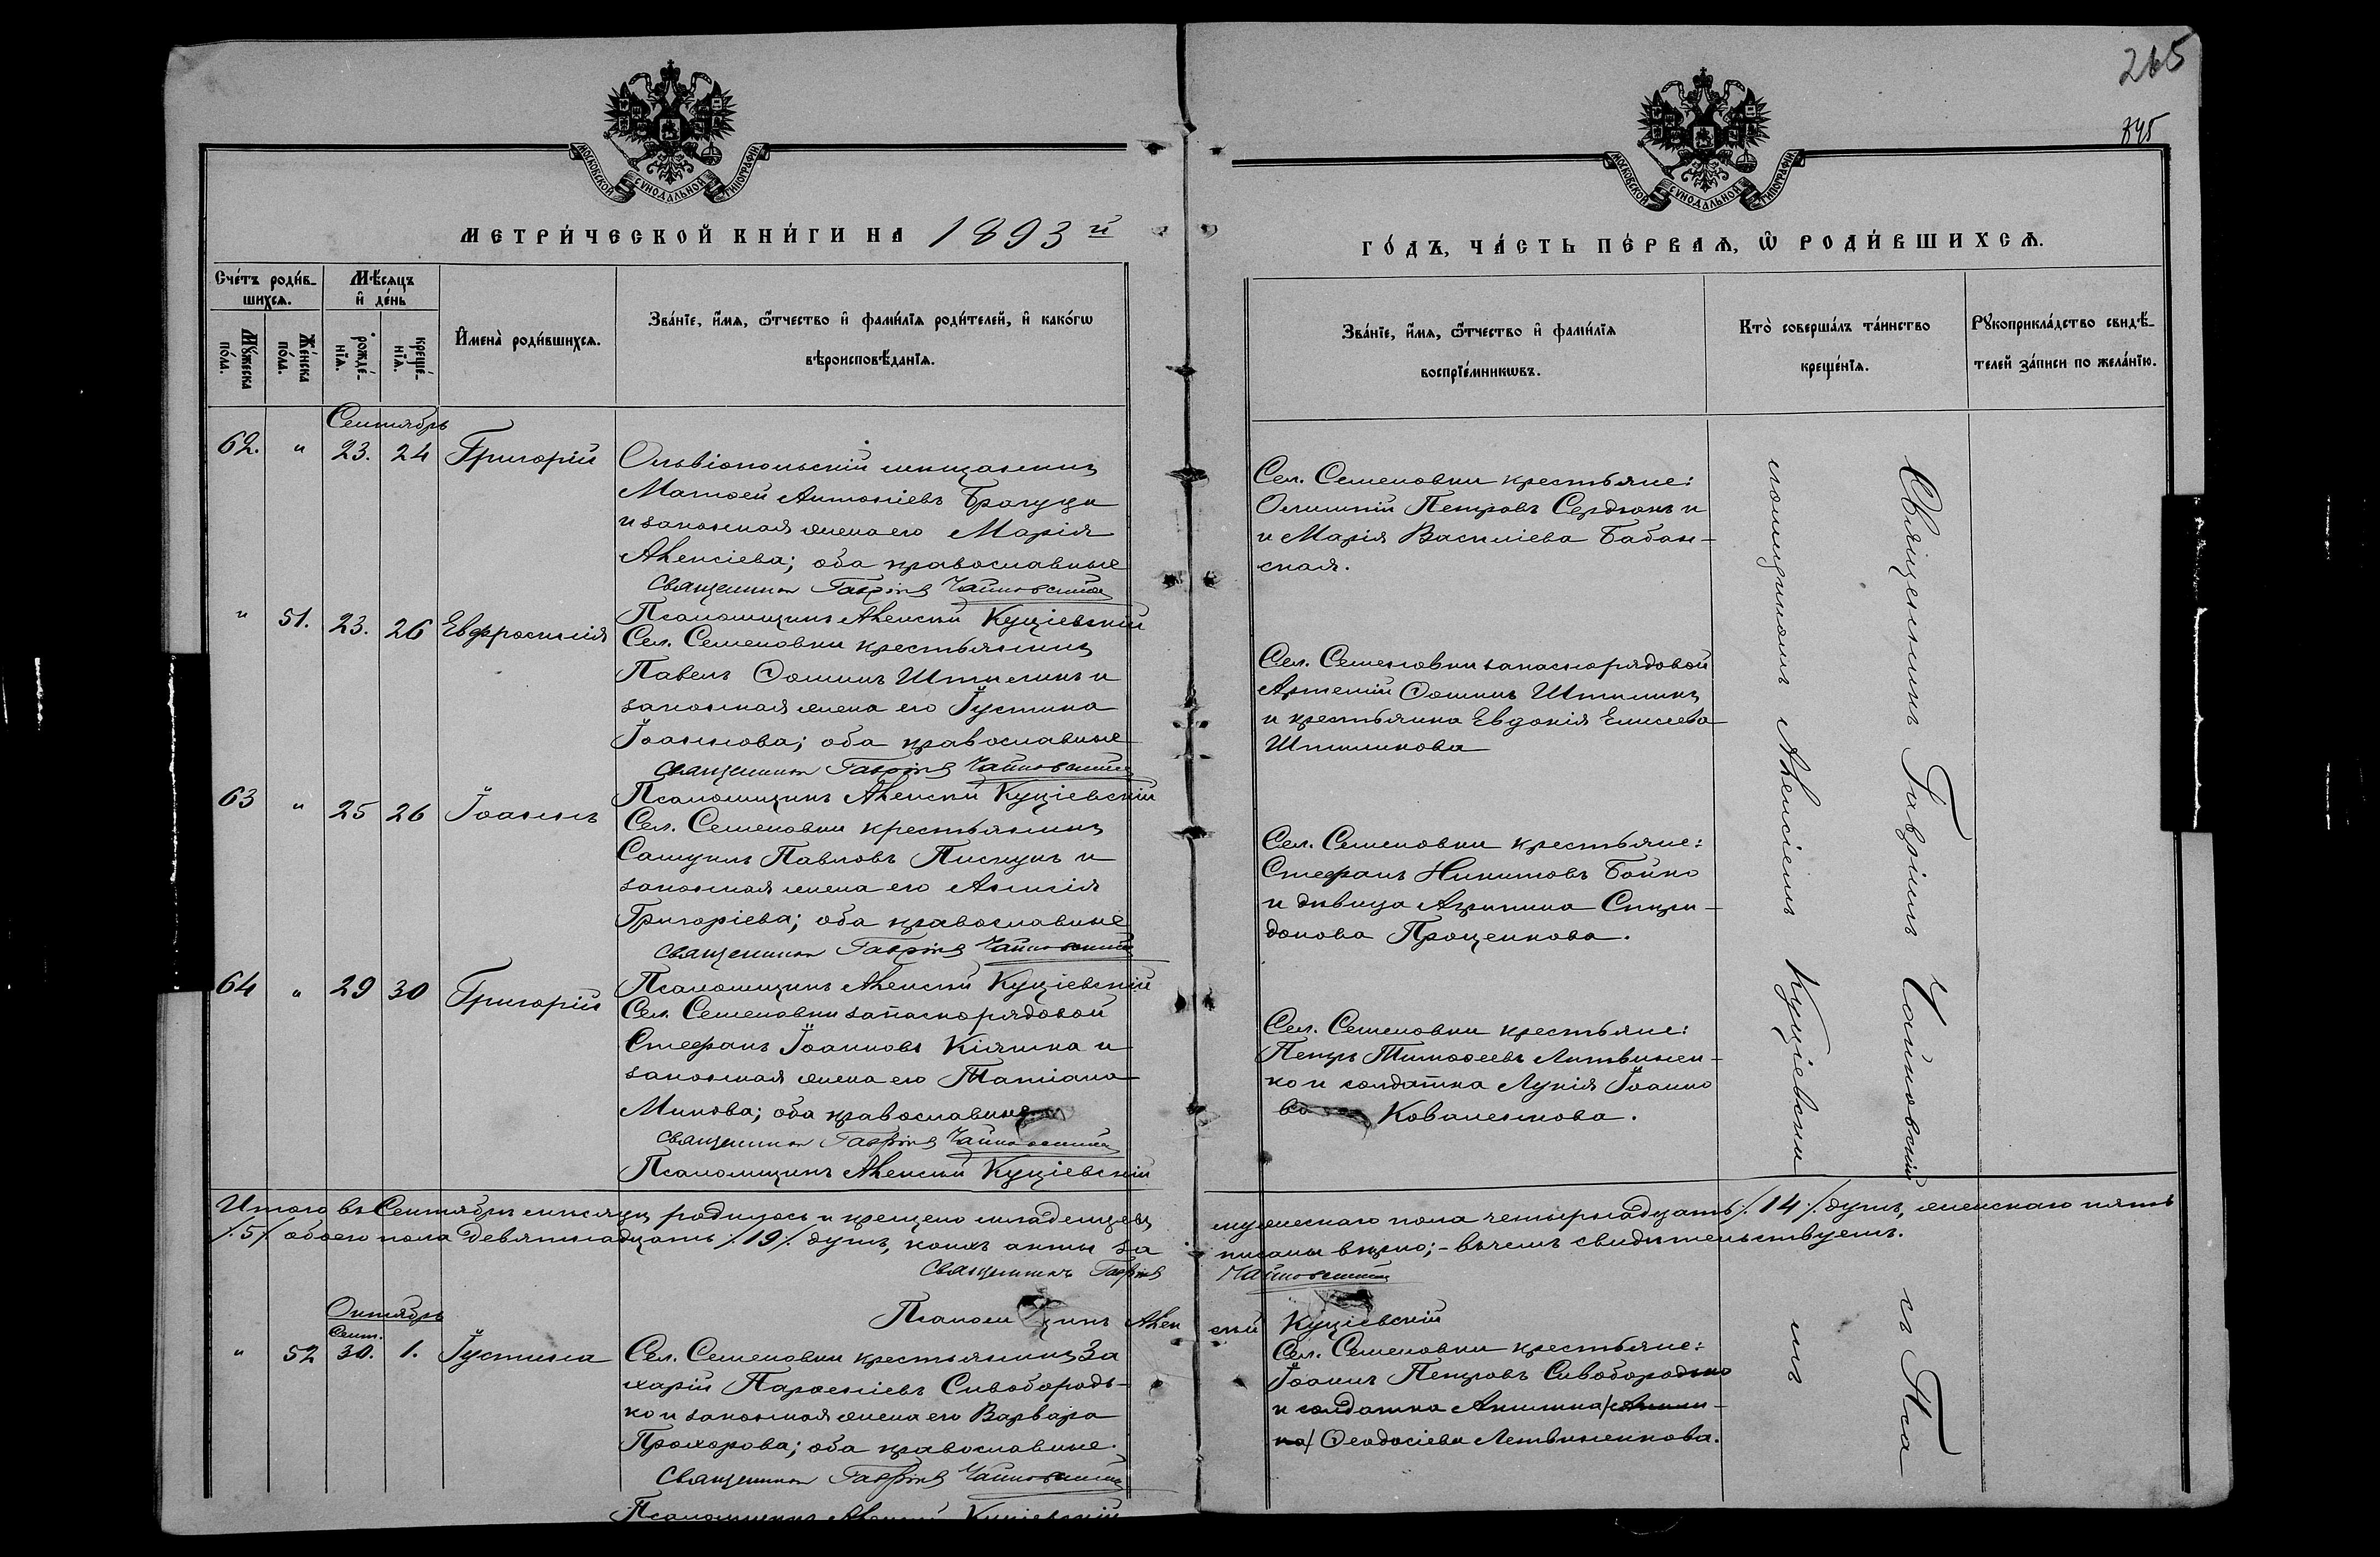 265
845
МОСКОВСКОЙ СѴНОДАЛЬНОЙ ТИПОГРАФІИ
МОСКОВСКОЙ СѴНОДАЛЬНОЙ ТИПОГРАФІИ
МЕТРИ́ЧЕСКОЙ КНИ́ГИ НА 1893й
ГО́ДЪ, ЧА́СТЬ ПЕ́РВАѦ, Ѡ҆ РОДИ́ВШИХСѦ.
Сче́тъ роди́в-
шихсѧ.
Мѣ́сѧцъ
и҆ де́нь
Мꙋ́жеска по́ла.
Же́нска по́ла.
рожде́-
нїѧ.
креще́-
нїѧ.
И҆мена̀ роди́вшихсѧ.
Зва́нїе, и҆́мѧ, ѻ҆́тчество и҆ фами́лїѧ роди́телей, и҆ како́гѡ
вѣроисповѣ́данїѧ.
Зва́нїе, и҆́мѧ, ѻ҆́тчество и҆ фами́лїѧ
воспрїе́мникѡвъ.
Кто̀ соверша́лъ та́инство
креще́нїѧ.
Рꙋкоприкла́дство свидѣ́-
телей за́писи по жела́нїю.
Сентябрь
62. " 23. 24 Григорій
Ольвіопольскій мѣщанинъ
Матѳей Антоніевъ
и законная жена его Марія
Алексіева; оба православные
Священникъ Гавріилъ Чайковскій
Псаломщикъ Алексѣй Куціевскій
Сел. Семеновки крестьяне:
Петровъ Сердюкъ и
и Марія Василіева Бабан-
ская.
" 51. 23. 26 Евфросинія
Сел. Семеновки крестьянинъ
Павелъ Ѳоминъ Штиликъ и
законная жена его Іустина
Іоаннова; оба православные
Священникъ Гавріилъ Чайковскій
Псаломщикъ Алексѣй Куціевскій
Сел. Семеновки запаснорядовой
Артемій Ѳоминъ Штиликъ
и крестьянка Евдокія Елисеева
Штиликова
63 " 25 26 Іоаннъ
Сел. Семеновки крестьянинъ
Самуилъ Павловъ Пискунъ и
законная жена его Анисія
Григоріева; оба православные
Священникъ Гавріилъ Чайковскій
Псаломщикъ Алексѣй Куціевскій
Сел. Семеновки крестьяне:
Стефанъ Никитовъ Бойко
и дѣвица Агрипина Спири-
донова Проценкова.
64 " 29 30 Григорій
Сел. Семеновки запаснорядовой
Стефанъ Іоанновъ Кіяшка и
законная жена его Татіана
Минова; оба православные
Священникъ Гавріилъ Чайковскій
Псаломщикъ Алексѣй Куціевскій
Сел. Семеновки крестьяне:
Петръ Тимоѳеевъ Литвинен-
ко и солдатка Лукія Іоанно
ва Коваленкова.
Священникъ Гавріилъ Чайковскій съ Пса
ломщикомъ Алексіемъ Куціевскимъ
Итого въ Сентябрѣ мѣсяцѣ родилось и крещено младенцевъ мужескаго пола четырнадцать /14/ душъ, женскаго пять
/5/ обоего пола девятнадцать /19/ душъ, коихъ акты записаны вѣрно; - въ чемъ свидѣтельствуемъ.
Священникъ Гавріилъ Чайковскій
Псаломщикъ Алексѣй Куціевскій
Октябрь
Сент.
" 52 30. 1. Іустина
Сел. Семеновки крестьянинъ За
харій Парѳеніевъ Сивобородь-
ко и законная жена его Варвара
Прохорова; оба православные.
Священникъ Гавріилъ Чайковскій
Псаломщикъ Алексѣй Куціевскій
Сел. Семеновки крестьяне:
Іоаннъ Петровъ Сивобородько
и солдатка
Ѳеодосіева Литвиненкова.